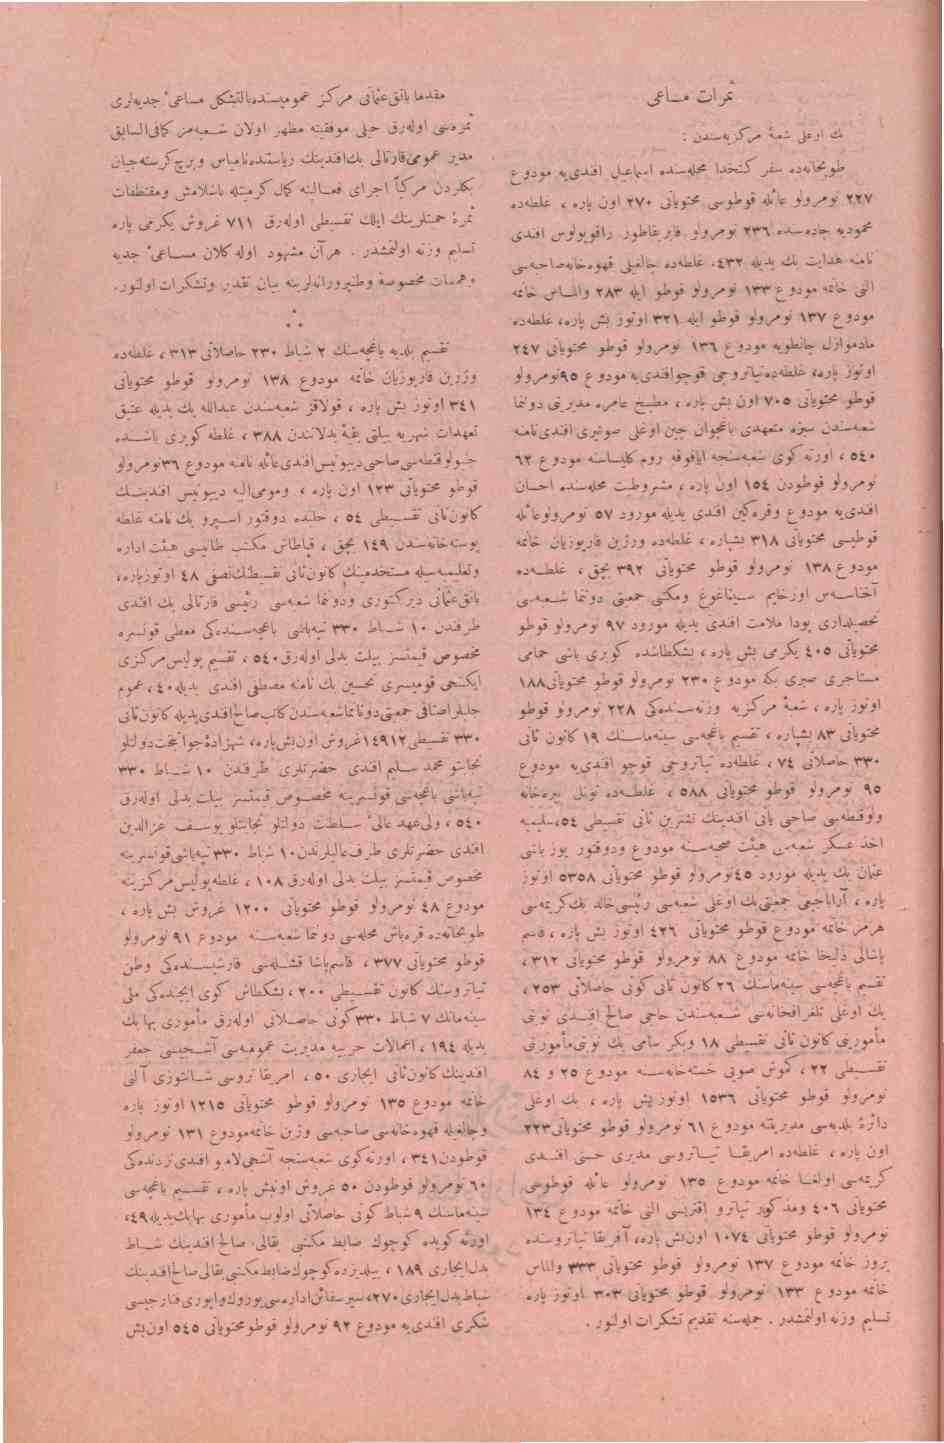 ثمرات مساعی
بك اوغلی شعبهٔ مركزیه سندن :
طوبخانه‌ده سفر كتخدا محله‌سنده اسماعیل افندی‌یه مودوع
٢٢٧ نومرولو عائله قوطوسی محتویاتی ٢٧٠ اون پاره ، غلطه‌ده
محمودیه جاده‌سنده ٢٣٦ نومرولو فابریقاطور راقوبولوس افندی
نامنه هدایت بك یدیله ٤٣٢، غلطه‌ده چالغیلی قهوه‌خانه صاحبه‌سی
النی خانمه مودوع ١٣٣ نومرولو قوطو ایله ٢٨٣ والماس خانمه
مودوع ١٣٧ نومرولو قوطو ایله ٣٢١ اوتوز بش پاره، غلطه‌ده
مادموازل جانطویه مودوع ١٣٦ نومرولو قوطو محتویاتی ٢٤٧
اوتوز پاره، غلطه‌ده تیاتروجی قوچو افندی‌یه مودوع ٩٥ نومرولو
قوطو محتویاتی ٧٠٥ اون بش پاره ، مطبخ عامره مدیریتی دونما
شعبه‌سندن سبزه متعهدی باغچوان جین اوغلی صوتیری افندی نامنه
٥٤٠ ، اورته كوی شعبه‌سنجه ایافوقه روم كلیساسنه مودوع ٦٢
نومرولو قوطودن ١٥٤ اون پاره ، مشروطیت محله‌سنده احسان
افندی‌یه مودوع وقره‌كین افندی یدیله مورود ٥٧ نومرولو عائله
قوطیسی محتویاتی ٣١٨ بشپاره ، غلطه‌ده ورژین قاریوزیان خانمه
مودوع ١٣٨ نومرولو قوطو محتویاتی ٣٩٢ بچق ، غلطه‌ده
آختاسه‌س اورخایم سیناغوغ ومكتبی جمعیتی دونما شعبه‌سی
تحصیلداری یودا ملامت افندی یدیله مورود ٩٧ نومرولو قوطو
محتویاتی ٤٠٥ یكرمی بش پاره ، بشكطاشده كوپری باشی حمامی
مستأجری صبری بكه مودوع ٢٣٠ نومرولو قوطو محتویاتی ١٨٨
اوتوز پاره ، شعبهٔ مركزیه وزنه‌سنده‌كی ٢٢٨ نومرولو قوطو
محتویاتی ٨٣ بشپاره ، تقسیم باغچه‌سی سینه‌ماسنك ١٩ كانون ثانی
٣٣٠ حاصلاتی ٧٤ ، غلطه‌ده تیاتروجی قوچو افندی‌یه مودوع
٩٥ نومرولو قوطو محتویاتی ٥٨٨ ، غلطه‌ده تونل بیره‌خانه
ولوقنطه‌سی صاحبی یانی افندینك تشرین ثانی تقسیطی ٥٤، سلیمیه
اخذ عسكر شعبه‌سی هیئت صحیه‌سنه مودوع ودوقتور یوز باشی
عثمان بك یدیله مورود ٤٥ نومرولو قوطو محتویاتی ٥٣٥٨ اوتوز
پاره ، آراباجیغی جمعیتی بك اوغلی شعبه‌سی رئیسی خالد بك كریمه‌سی
هرمز خانمه مودوع قوطو محتویاتی ٤٢٦ اوتوز بش پاره ، قاسم
پاشالی ذلیخا خانمه مودوع ٨٨ نومرولو قوطو محتویاتی ٣١٢ ،
تقسیم باغچه‌سی سینه‌ماسنك ٢٦ كانون ثانی كونی حاصلاتی ٢٥٣ ،
بك اوغلی تلغرافخانه‌سی شعبه‌سندن حاجی صالح افندی نوتی
مأمورینی كانون ثانی تقسیطی ١٨ وبكر سامی بك نوتی مأمورینی
تقسیطی ٢٢ ، كموش صویی خسته‌خانه‌سنه مودوع ٢٥ و ٨٤
نومرولو قوطو محتویاتی ١٥٣٦ اوتوز بش پاره ، بك اوغلی
دائرهٔ بلدیه‌سی مدیریتنه مودوع ٦١ نومرولو قوطو محتویاتی ٢٢٣
اون پاره ، غلطه‌ده امریقا تیاتروسی مدیری حسنی افندی
كریمه‌سی اولغا خانمه مودوع ١٣٥ نومرولو عائله قوطوسی
محتویاتی ٤٠٦ ومذكور تیاترو اقتریسی النی خانمه مودوع ١٣٤
نومرولو قوطو محتویاتی ١٠٧٤ اون بش پاره، آفریقا تیاتروسنده
پروز خانمه مودوع ١٣٧ نومرولو قوطو محتویاتی ٣٣٣ والماس
خانمه مودوع ١٣٣ نومرولو قوطو محتویاتی ٣٠٣ اوتوز پاره
تسلیم وزنه اولنمشدر . جمله‌سنه تقدیم تشكرات اولنور .
مقدما بانق عثمانی مركز عمومیسنده بالتشكل مساعیٔ جدیه‌لری
ثمره‌سی اوله‌رق خیلی موفقیته مظهر اولان شعبه‌مز كمافی‌السابق
مدیر عمومی قارتالی بك افندینك ریاستنده نامیاس ویریچ كرسته‌جیان
بكلردن مركباً اجرای فعالیته كمال كرمیتله باشلامش ومقتطفات
ثمرهٔ حمیتلرینك ایلك تقسیطی اوله‌رق ٧١١ غروش یكرمی پاره
تسلیم وزنه اولنمشدر . هر آن مشهود اوله‌كلان مساعیٔ جدیه
وهمات مخصوصهٔ وطنپرورانه‌لرینه بیان تقدیر وتشكرات اولنور.
⁂
تقسیم بلدیه باغچه‌سنك ٢ شباط ٢٣٠ حاصلاتی ٣١٣ ، غلطه‌ده
ورژین قاریوزیان خانمه مودوع ١٣٨ نومرولو قوطو محتویاتی
٣٤١ اوتوز بش پاره ، قولاقز شعبه‌سندن عبدالله بك یدیله عتیق
تعهدات شهریه بیلتی بقیهٔ بدلاتندن ٣٨٨ ، غلطه كوپری باشنده
جنولوقنطه‌سی صاحبی دیبونیس افندی عائله نامنه مودوع ٣٦ نومرولو
قوطو محتویاتی ١٢٣ اون پاره ، ومومی الیه دیبونیس افندینك
كانون ثانی تقسیطی ٥٤ ، جلبده دوقتور اسپرو بك نامنه غلطه
پوسته‌خانه‌سندن ١٤٩ بچق ، قباطاش مكتب طانیسی هیئت اداره
وتعلیمیه‌سیله مستخدمینك كانون ثانی تقسیطنك نصفی ٤٨ اوتوز پاره،
بانق عثمانی دیركتوری ودونما شعبه‌سی رئیسی قارتالی بك افندی
طرفندن ١٠ شباط ٣٣٠ تپه‌باشی باغچه‌سنده‌كی معطی قونسره
مخصوص قیمتسز بیلت بدلی اوله‌رق ٥٤٠ ، تقسیم پولیس مركزی
ایكنجی قومیسری تحسین بك نامنه مصطفی افندی یدیله ٤٠ ، عموم
جلبلر اصنافی جمعیتی دونانما شعبه‌سندن كاتب صالح افندی یدیله كانون ثانی
٣٣٠ تقسیطی ١٤٩١٢ غروش اون بش پاره ، شهزادهٔ جوانبخت دولتلو
نجابتلو محمد سلیم افندی حضرتلری طرفندن ١٠ شباط ٣٣٠
تپه‌باشی باغچه‌سی قونسرینه مخصوص قیمتسز بیلت بدلی اوله‌رق
٥٤٠ ، ولی عهد عالیٔ سلطنت دولتلو نجابتلو یوسف عزالدین
افندی حضرتلری طرف عالیلرندن ١٠ شباط ٣٣٠ تپه‌باشی قونسرینه
مخصوص قیمتسز بیلت بدلی اوله‌رق ١٠٨ ، غلطه پولیس مركزینه
مودوع ٤٨ نومرولو قوطو محتویاتی ١٢٠٠ غروش بش پاره ،
طوبخانه‌ده قره‌باش محله‌سی دونما شعبه‌سنه مودوع ٩١ نومرولو
قوطو محتویاتی ٣٧٧ ، قاسم پاشا قشله‌سی قارشیسنده‌كی وطن
تیاتروسنك كانون تقسیطی ٢٠٠ ، بشكطاش كوی ایچنده‌كی ملی
سینه‌مانك ٧ شباط ٣٣٠ كونی حاصلاتی اوله‌رق مأموری بها بك
یدیله ١٩٤ ، اعمالات حربیه مدیریت عمومیه‌سی آشجیسی جعفر
افندینك كانون ثانی ایجاری ٥٠ ، امریقا تروسی شانتوزی آلنی
خانمه مودوع ١٣٥ نومرولو قوطو محتویاتی ١٢١٥ اوتوز پاره
وچالغیلی قهوه‌خانه‌سی صاحبه‌سی وژین خانمه مودوع ١٣١ نومرولو
قوطودن ٣٤١ ، اورته كوی شعبه‌سنجه آشجی لامبو افندی نزدنده‌كی
٦٠ نومرولو قوطودن ٥٠ غروش اون بش پاره ، تقسیم باغچه‌سی
سینه‌ماسنك ٩ شباط كونی حاصلاتی اولوب مأموری بها بك یدیله ٤٩،
اورته كویده كوچوك ضابط مكتبی بقالی صالح افندینك شباط
بدل ایجاری ١٨٩ ، ییلدیزده كوچوك ضابط مكتبی بقالی صالح افندینك
شباط بدل ایجاری ٢٧٠ ، سیر سفائن اداره‌سی یوروك واپوری قنارجیسی
شكری افندی‌یه مودوع ٩٢ نومرولو قوطو محتویاتی ٥٤٥ اون بش